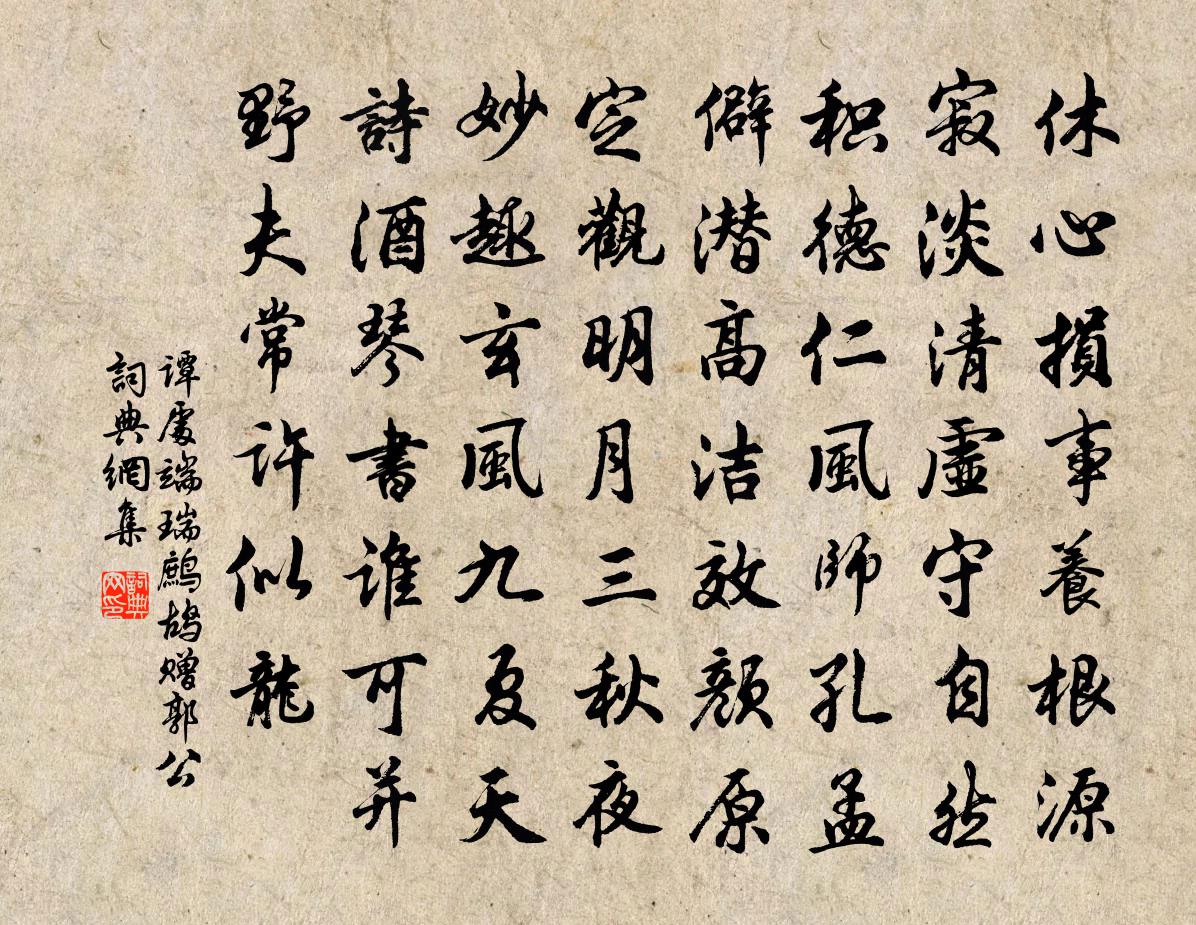 休心損事養根源
寂淡清虛守自然
积德仁風師孔孟
僻潜高洁效顏原
定觀明月三秋夜
妙趣玄風九夏天
詩酒琴書誰可并
野夫常許似龍
谭處端瑞鷓鴣赠郭公
詞典網集
詞典
网印